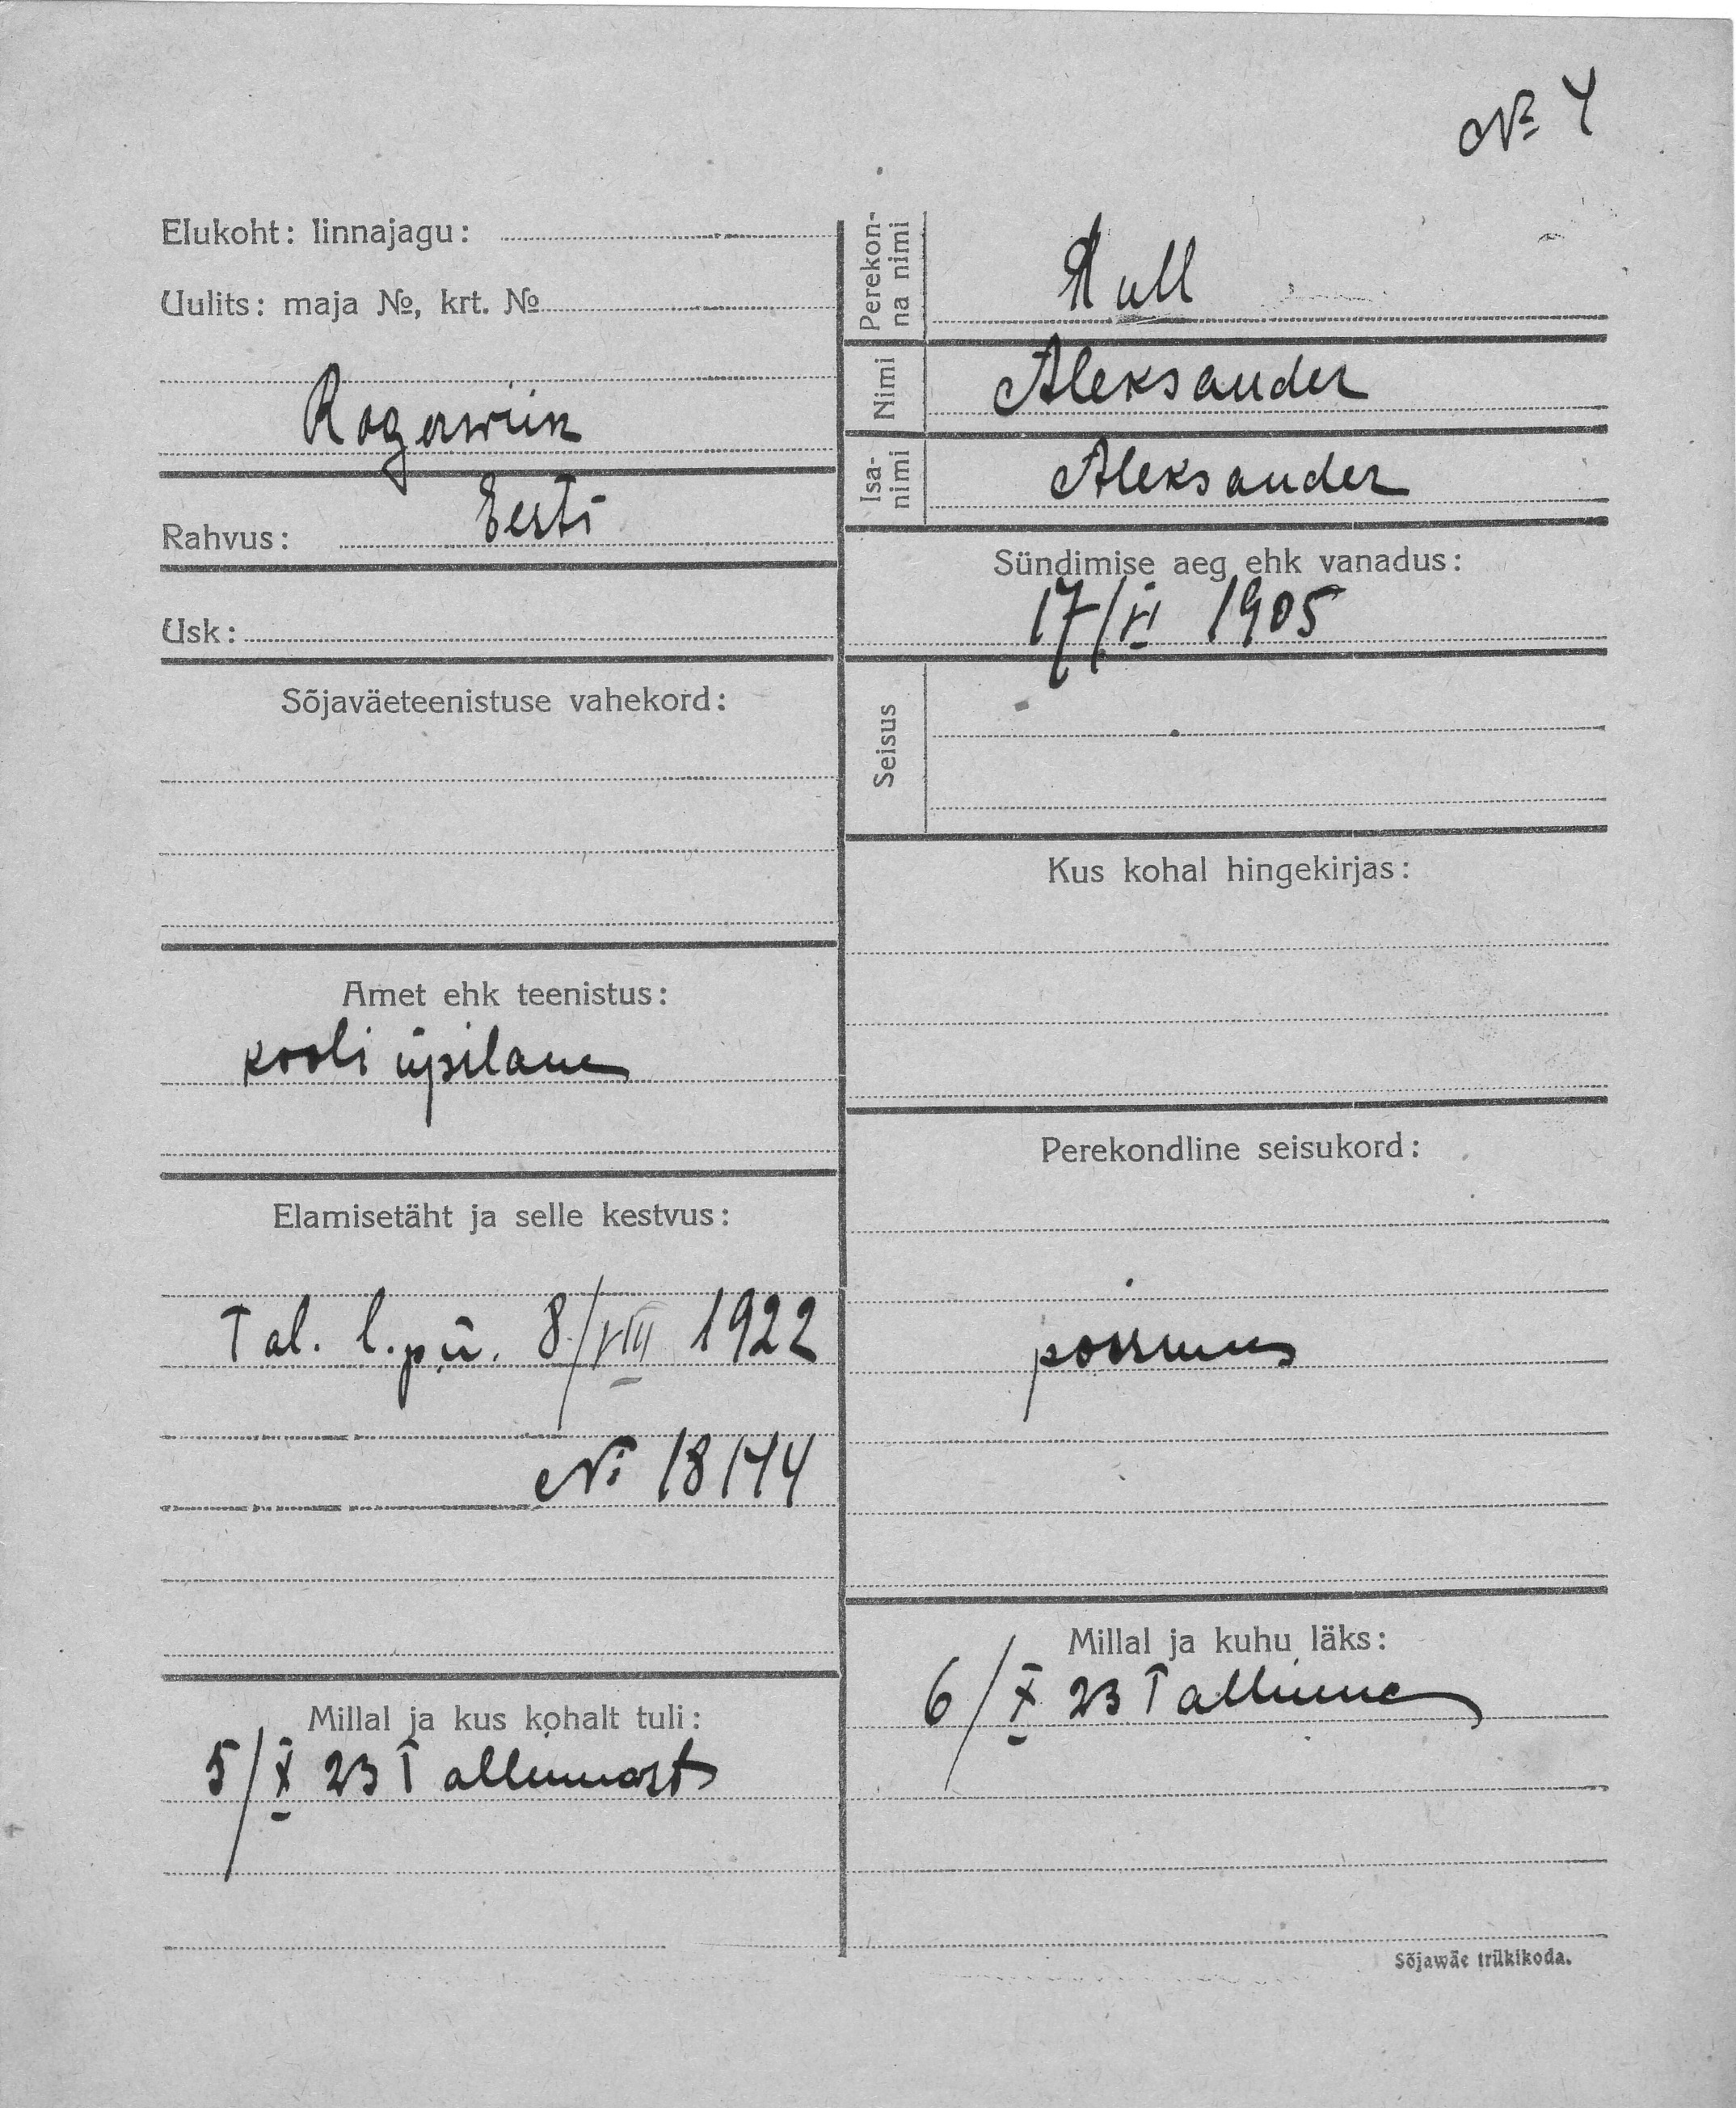 № 4
Elukoht: linnajagu:
Uulits: maja №, krt. №
Rogerwiik
Rahvus: Eesti
Usk:
Sõjaväeteenistuse vahekord:
Amet ehk teenistus:
kooli üpilane
Elamisetäht ja selle kestvus:
Tal. l. p. ü. 8/VIII 1922
№ 18144
Millal ja kus kohalt tuli:
5/X 23 Tallinnast
Perekonna nimi
Nimi Aleksander
Isanimi Aleksander
Sündimise aeg ehk vanadus:
17/VI 1905
Seisus
Kus kohal hingekirjas:
Perekondline seisukord:
poissmees
Millal ja kuhu läks:
6/X 23 Tallinna
Sõjawäe trükikoda.